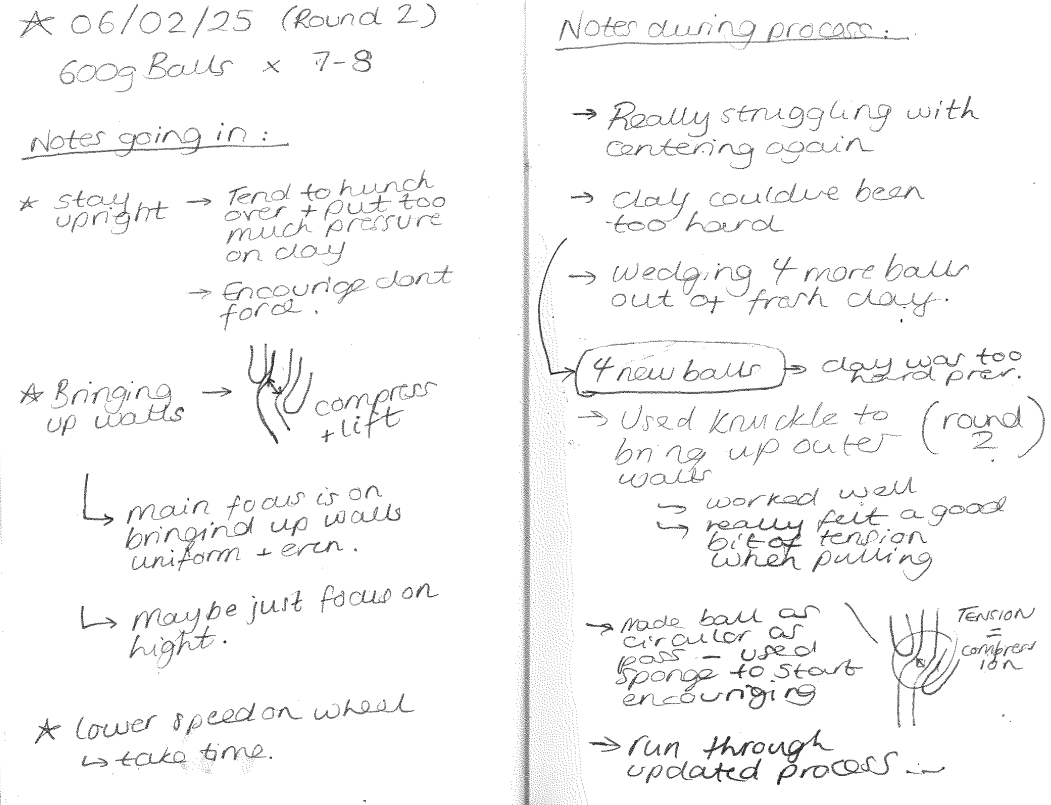 ☆ 06/02/25 (Round 2)
600g Balls × 7-8
Notes going in :
☆ stay
upright → Tend to hunch
over + put too
much pressure
on clay
→ Encourige dont
force.
☆ Bringing
up walls →
compress
+ lift
↳ main focus is on
bringind up walls
uniform + even.
↳ Maybe just focus on
hight.
☆ lower speed on wheel
↳ take time.
Notes during process :
→ Really struggling with
centering again
→ clay couldve been
too hard
→ wedging 4 more balls
out of fresh clay.
4 new balls → clay was too
hard prev.
→ Used knuckle to
bring up outer
walls
(round
2)
↳ worked well
↳ really felt a good
bit of tension
when pulling
→ Made ball as
circular as
poss – used
sponge to start
encouriging
TENSION
=
compress
ion
→ run through
updated process